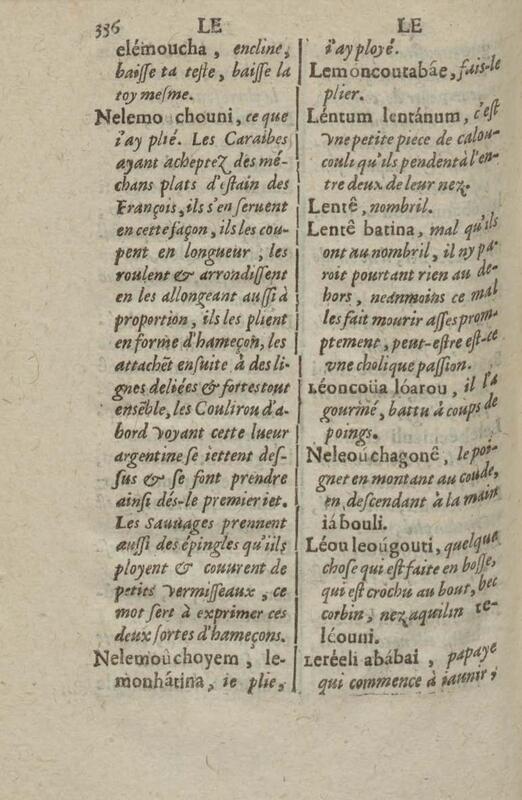 336 LE LE
elémoucha, encline,
baisse ta teste, baisse la
toy mesme.
Nelemo chouni, ce que
i'ay plié. Les Caraibes
ayant acheptez des mé-
chans plats d'estain des
François, ils s'en seruent
en cette façon, ils les cou-
pent en longueur, les
roulent & arrondissent
en les allongeant aussi à
proportion, ils les plient
en forme d'hameçon, les
attachẽt ensuite à des li-
gnes deliées & fortes tout
ensẽble, les Coulirou d'a-
bord voyant cette lueur
argentine se iettent des-
sus & se font prendre
ainsi dés-le premier iet.
Les Sauuages prennent
aussi des épingles qu'iils
ployent & couurent de
petits vermisseaux, ce
mot sert à exprimer ces
deux sortes d'hameçons.
Nelemoûchoyem, le-
monhátina, ie plie,
i'ay ployé.
Lemoncoutabâe, fais-le
plier.
Léntum lentánum, c'est
vne petite piece de calou-
couli qu'ils pendent à l'en-
tre deux de leur nez.
Lentê, nombril.
Lentê batina, mal qu'ils
ont au nombril, il ny pa-
roit pourtant rien au de-
hors, neãnmoins ce mal
les fait mourir asses prom-
ptement, peut-estre est-ce
vne cholique passion.
Léoncoüa lóarou, il l'a
gourmé, battu à coups de
poings.
Neleoûchagonê, le poi-
gnet en montant au coude,
en descendant à la main
iábouli.
Léou leoúgouti, quelque
chose qui est faite en bosse,
qui est crochu au bout, bec
corbin, nez aquilin te-
léouni.
Leréeli abábai, papaye
qui commence à iaunir,